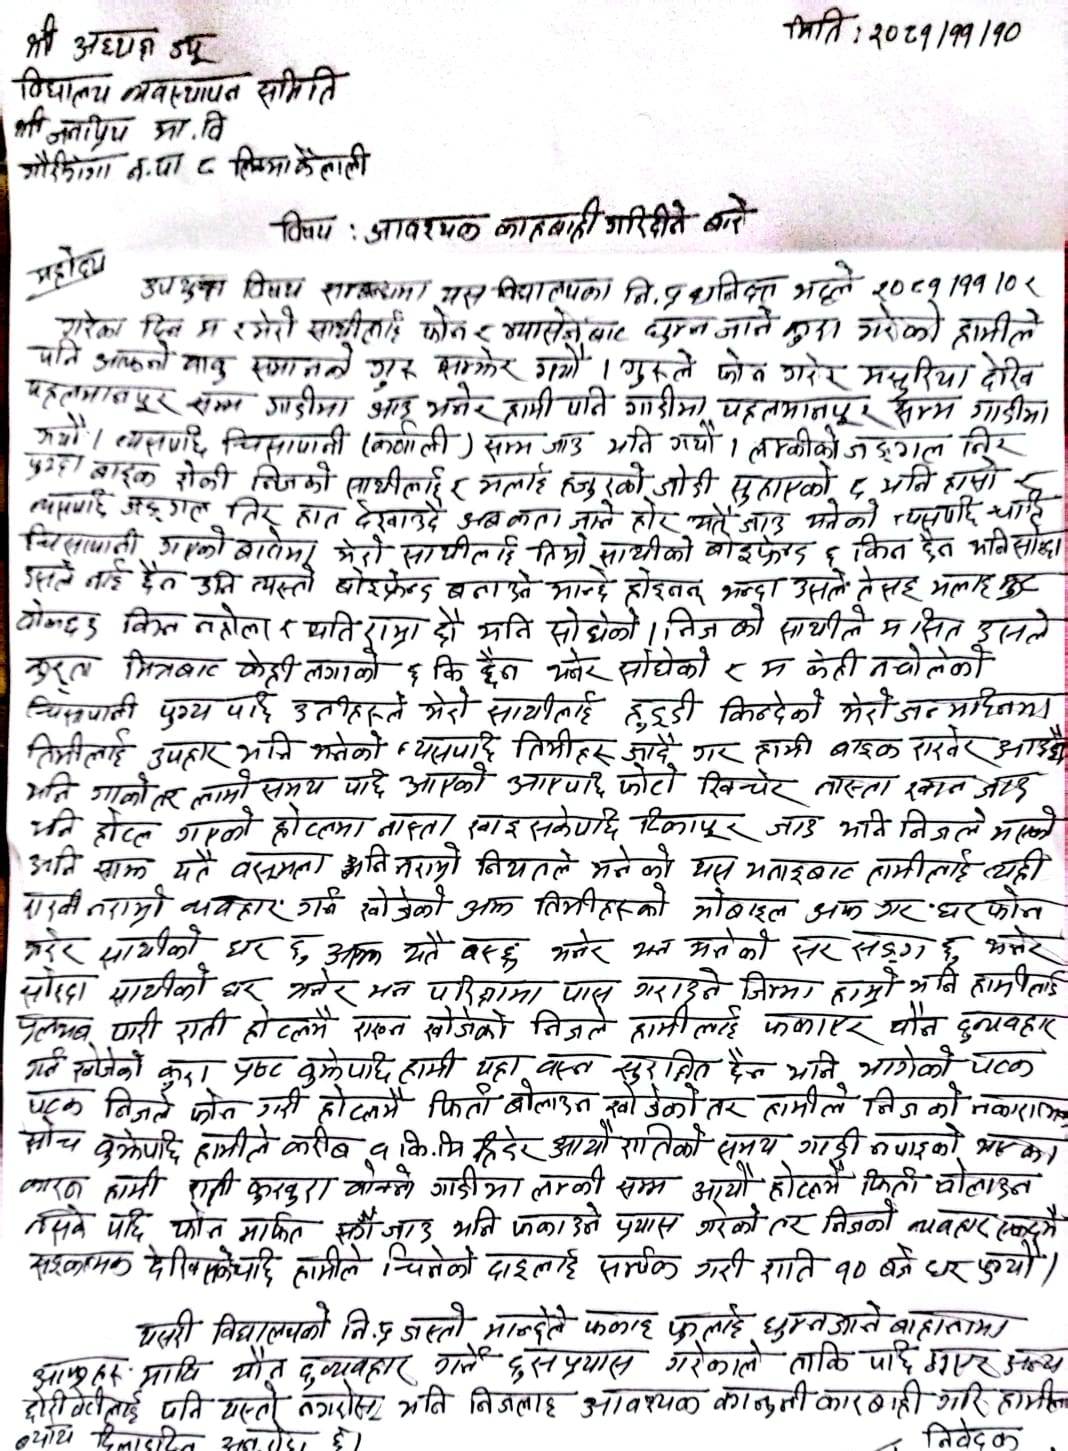 मिति : २०८१/११/१०
श्री अध्यक्ष ज्यू
विद्यालय व्यवस्थापन समिति
श्री जनप्रिय मा.वि
गौरीगंगा न.पा ८ कैलाली
विषय : आवश्यक कारबाही गरिदीने बारे
महोदय
उपयुक्त विषय सम्बन्धमा यस विद्यालयका नि.प्र भट्टले २०८१/११/०९
गतेका दिन म र मेरो साथीलाई फोन र म्यासेन्जबाट घुम्न जाने कुरा गरेको हामीले
पनि आफ्नो बाबु समानको गुरु सम्झेर गयौ । गुरुले फोन गरेर मसुरिया देखि
पहलमानपुर सम्म गाडीमा आउ भनेर हामी पनि गाडीमा पहलमानपुर सम्म गाडीमा
गयौ । त्यसपछि चिसापानी (कर्णाली) सम्म जाउ भनि गयौ । लम्कीको जङ्गल निर
पुग्दा बाइक रोकी निजको साथीलाई र मलाई हजुरको जोडी सुहाएको छ भनि हासो र
त्यसपछि जङ्गल तिर हात देखाउदै अब कता जाने हो भनेको त्यसपछि
चिसापानी गएको बाटोमा मेरो साथीलाई तिम्रो साथीको बोइफ्रेन्ड छ कित छैन भनि सोध्दा
उसले नाई छैन उनि त्यस्तो बोइफ्रेन्ड बनाउने मान्छे होइनन् भन्दा उसले मलाई झुट
बोल्दछ किन नहोला र यति राम्रा छौ भनि सोधेको । निज को साथीले म सित इसले
कुर्ता भित्रबाट केही लगाको छ कि छैन भनेर सोधेको र म केही नबोलेको
चिसापानी पुग्य पछि उनीहरुले मेरो साथीलाई हुड्डी किनदेको मेरो जन्मदिनमा
तिमीलाई उपहार भनि भनेको त्यसपछि तिमीहरु जादै गर हामी बाइक राखेर आउछौ
भनि गाको तर लामो समय पछि आएको आएपछि फोटो खिन्चेर नास्ता खान जाउ
भनि होटल गएको होटलमा नास्ता खाइ सकेपछि टिकापुर जाउ भनि निजले भनेको
अनि साझ यतै बसुमला भनि नराम्रो नियतले भनेको यस भनाइबाट हामीलाई त्यही
राखी नराम्रो व्यवहार गर्न खोजेको अझ तिमीहरुको मोबाइल अफ गर घर फोन
गरेर साथीको घर छु, आज यतै बस्छु भनेर भन भनेको सर सङ्ग छु भनेर
सोध्दा साथीको घर भनेर भन परिक्षामा पास गराउने जिम्मा हाम्रो भनि हामीलाई
प्रलोभन पारी राती होटलमै राख्न खोजेको निजले हामीलाई फकाएर यौन दुव्यवहार
गर्न खोजेको कुरा प्रष्ट बुझेपछि हामी यहा बस्न सुरक्षित छैन भनि भागेको पटक
पटक निजले फोन गरी होटलमै फिर्ता बोलाउन खोजेको तर हामीले निज को नकारात्मक
सोच बुझेपछि हामीले करीब ५ कि.मि हिडेर आयौ रातिको समय गाडी नपाइको भएका
कारन हामी राती कुखुरा बोक्ने गाडीमा लम्की सम्म आयौ होटलमै फिर्ता बोलाउन
नसके पछि फोन मार्फत सगै जाउ भनि फकाउने प्रयास गरेको तर निजको व्यवहार
देखिसकेपछि हामीले चिनेको दाइलाई सर्म्पक गरी राति १० बजे घर पुग्यौ ।
यसरी विद्यालयको नि.प्र जस्तो मान्छेले फकाइ फुलाई घुम्न जाने बाहानामा
आफुहरु माथि यौन दुव्यवहार गर्ने दुस्प्रयास गरेकाले ताकि पछि गएर अन्य
छोरीचेटीलाई पनि यस्तो नगरोस् भनि निजलाई आवश्यक कानुनी कारबाही गरि हामीलाई
न्याय दिलाइदिन अनुरोध छ ।
निवेदक